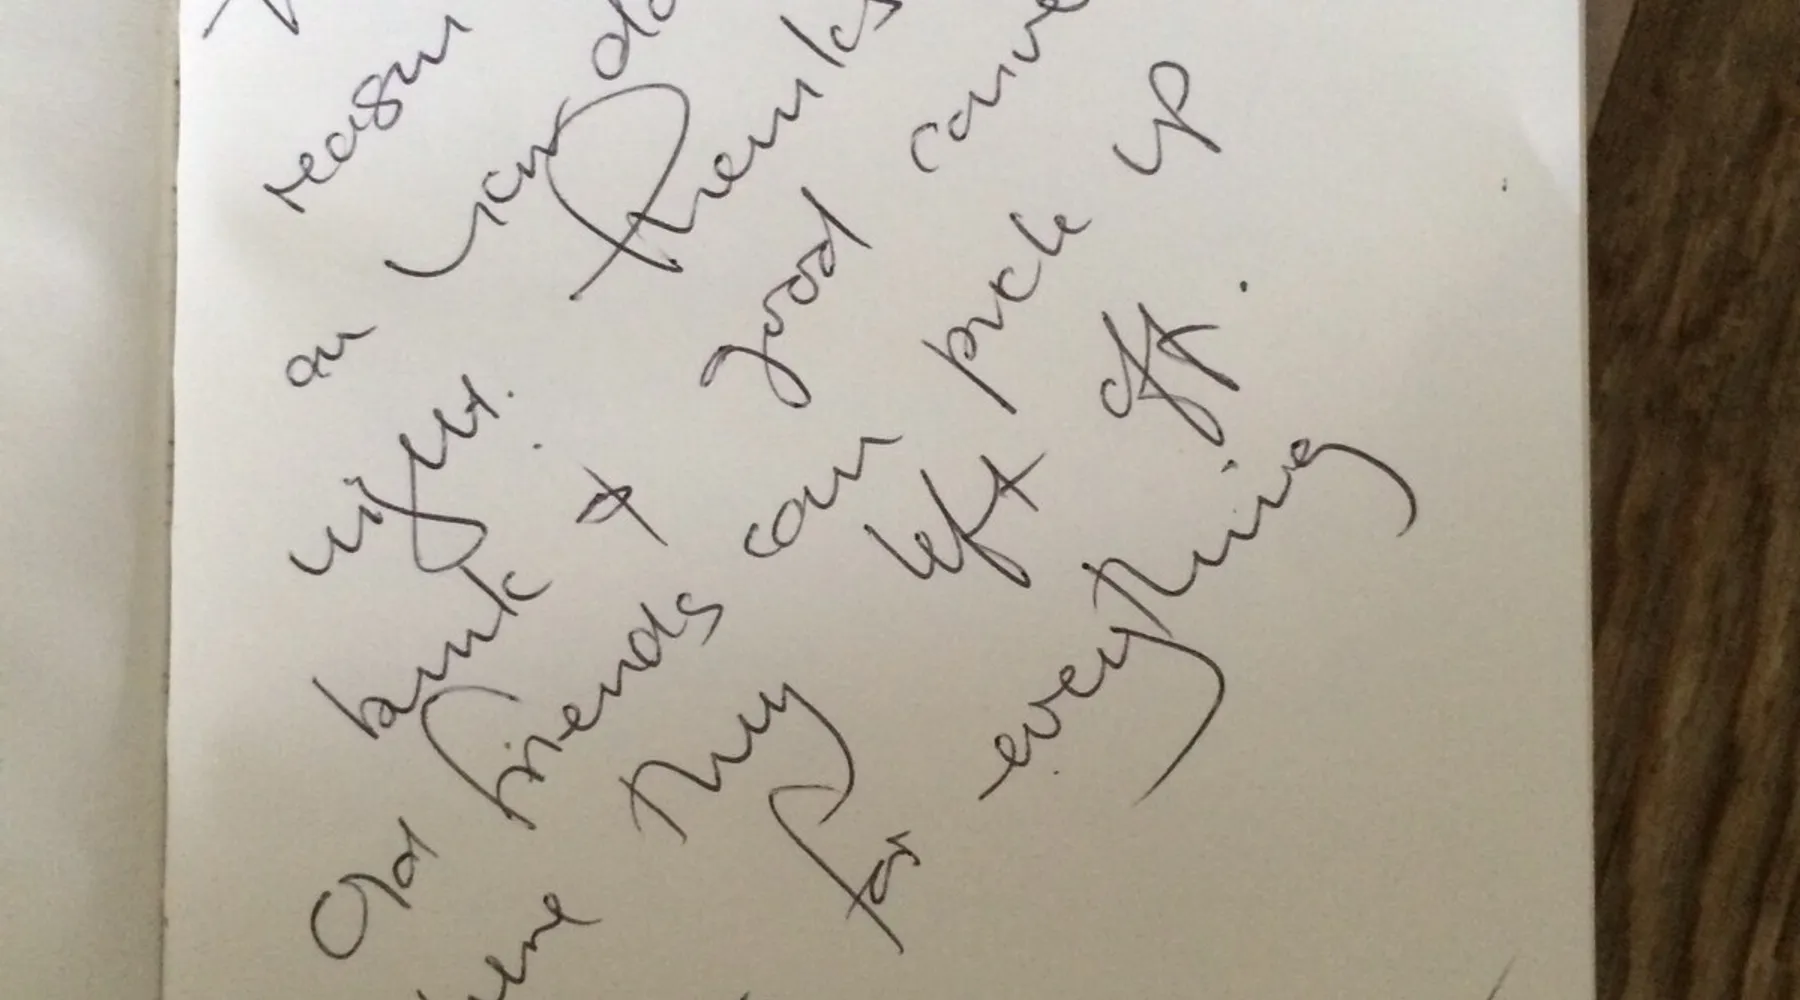 reason
on
night. Thanks
& good conve
Old friends can pick up
where they left off.
for everything